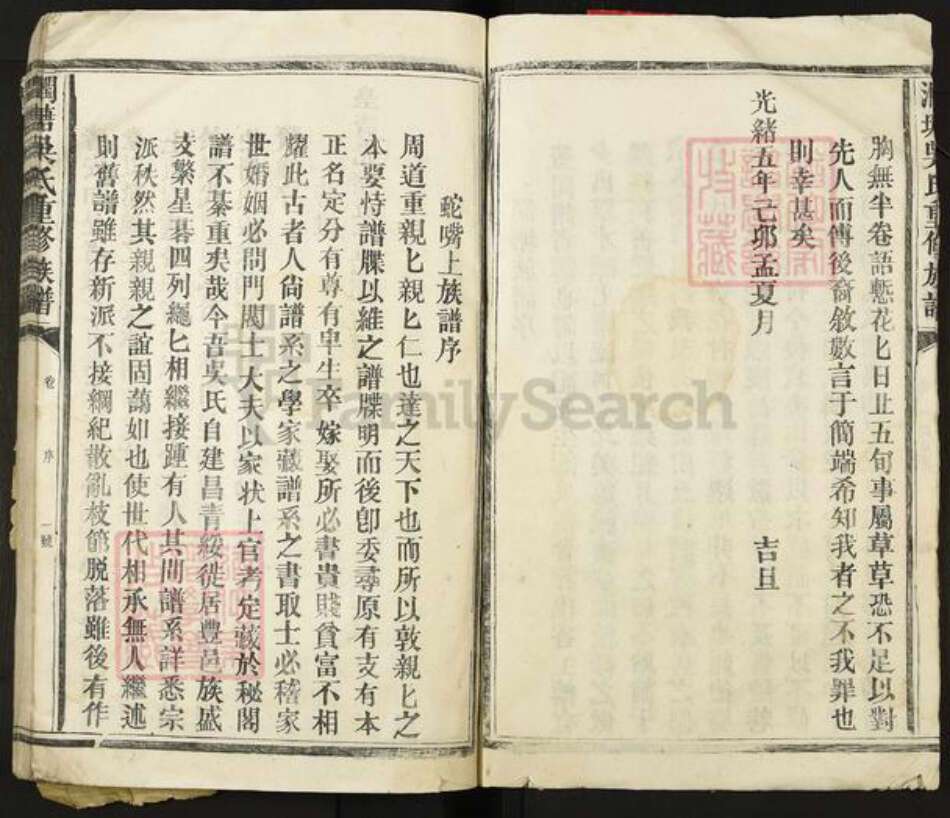 胸無半卷語慙花匕日㐀五旬事屬草草恐不足以對
先人而傳後裔敘數言于簡端希知我者之不我罪也
則幸甚矣
光緒五年己卯孟夏月 吉旦
吳氏重修族譜
蛇嘴上族譜序
周道重親匕親匕仁也達之天下也而所以敦親匕之
本要恃譜牒以維之譜牒明而後卽委尋原有支有本
正名定分有尊有卑生卒嫁娶所必書貴賤貧富不相
耀此古者人尙譜系之學家藏譜系之書取士必稽家
世婚姻必問門閥士大夫以家状上官考定藏於秘閣
譜不綦重矣哉今吾吳氏自建昌青綏徙居豐邑族盛
支繁星碁四列繩匕相繼接踵有人其間譜系詳悉宗
派秩然其親親之誼固藹如也使世代相承無人繼述
則舊譜雖存新派不接綱紀散亂枝節脫落雖後有作
吳氏重修族譜
卷 序 一號
FamilySearch